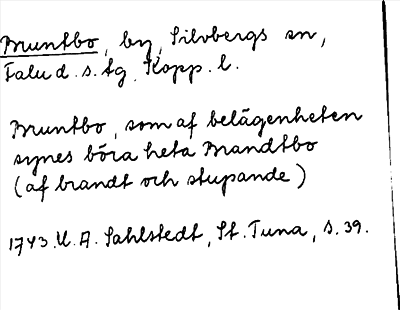 Bruntbo, by, Silvbergs sn,
Falu d. s. tg, Kopp. l.
Bruntbo, som af belägenheten
synes böra heta Brandtbo
(af brandt och stupande)
1743. U. A. Sahlstedt, St. Tuna, s. 39.